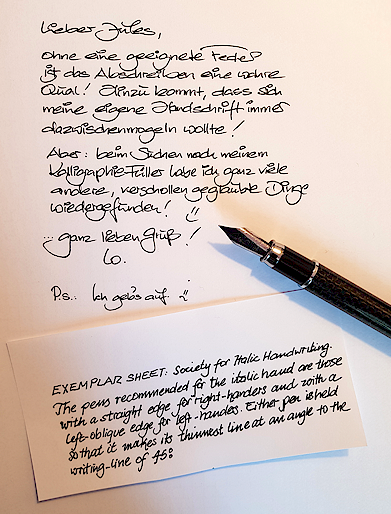 Lieber Jules,
ohne eine geeignete Feder
ist das Abschreiben eine wahre
Qual! Hinzu kommt, dass sich
meine eigene Handschrift immer
dazwischenmogeln wollte!
Aber: beim Suchen nach meinem
Kalligraphie-Füller habe ich ganz viele
andere, verschollen geglaubte Dinge
wiedergefunden!
... ganz lieben Gruß!
Lo.
P.s.: Ich geb's auf
EXEMPLAR SHEET: Society for Italic Handwriting.
The pens recommended for the italic hand are those
with a straight edge for right-handers and with a
left-oblique edge for left-handers. Either pen is held
so that it makes its thinnest line at an angle to the
writing-line of 45°